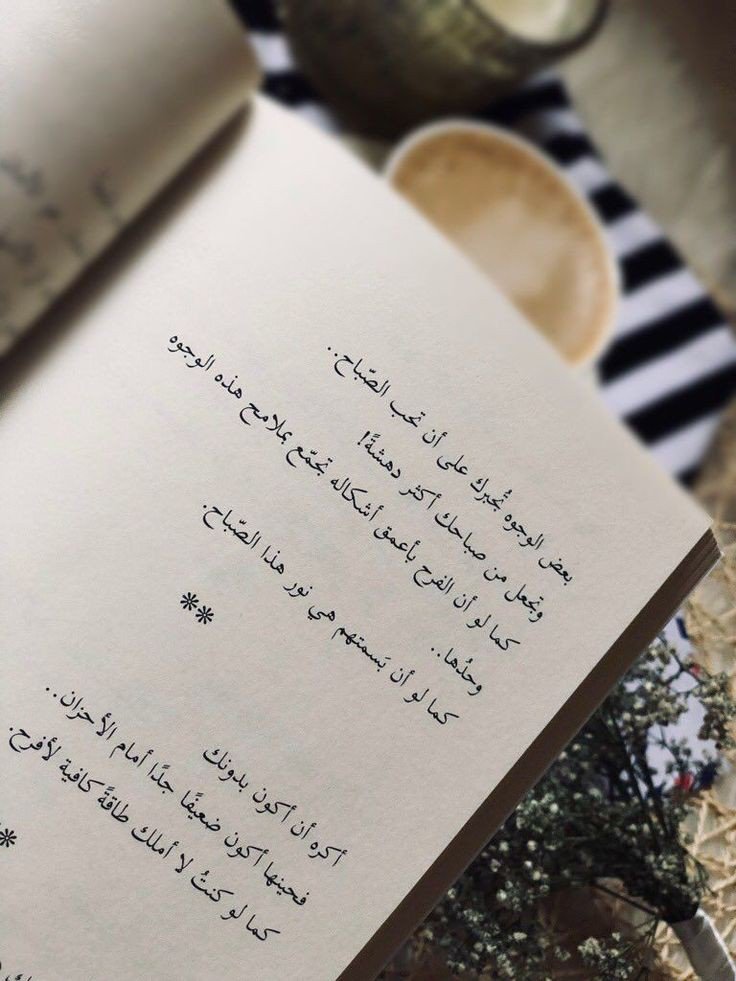 بعض الوجوه تُجبرك على أن تحب الصّباح..
وتجعل من صباحك أكثر دهشةً!
كما لو أن الفرح بأعمق أشكاله تجمّع بملامح هذه الوجوه
وحدُها..
كما لو أن بَسمتهم هي نور هذا الصّباح.
**
أكره أن أكون بدونك
فحينها أكون ضعيفًا جدًا أمام الأحزان..
كما لو كنتُ لا أملك طاقةً كافية لأفرح.
*